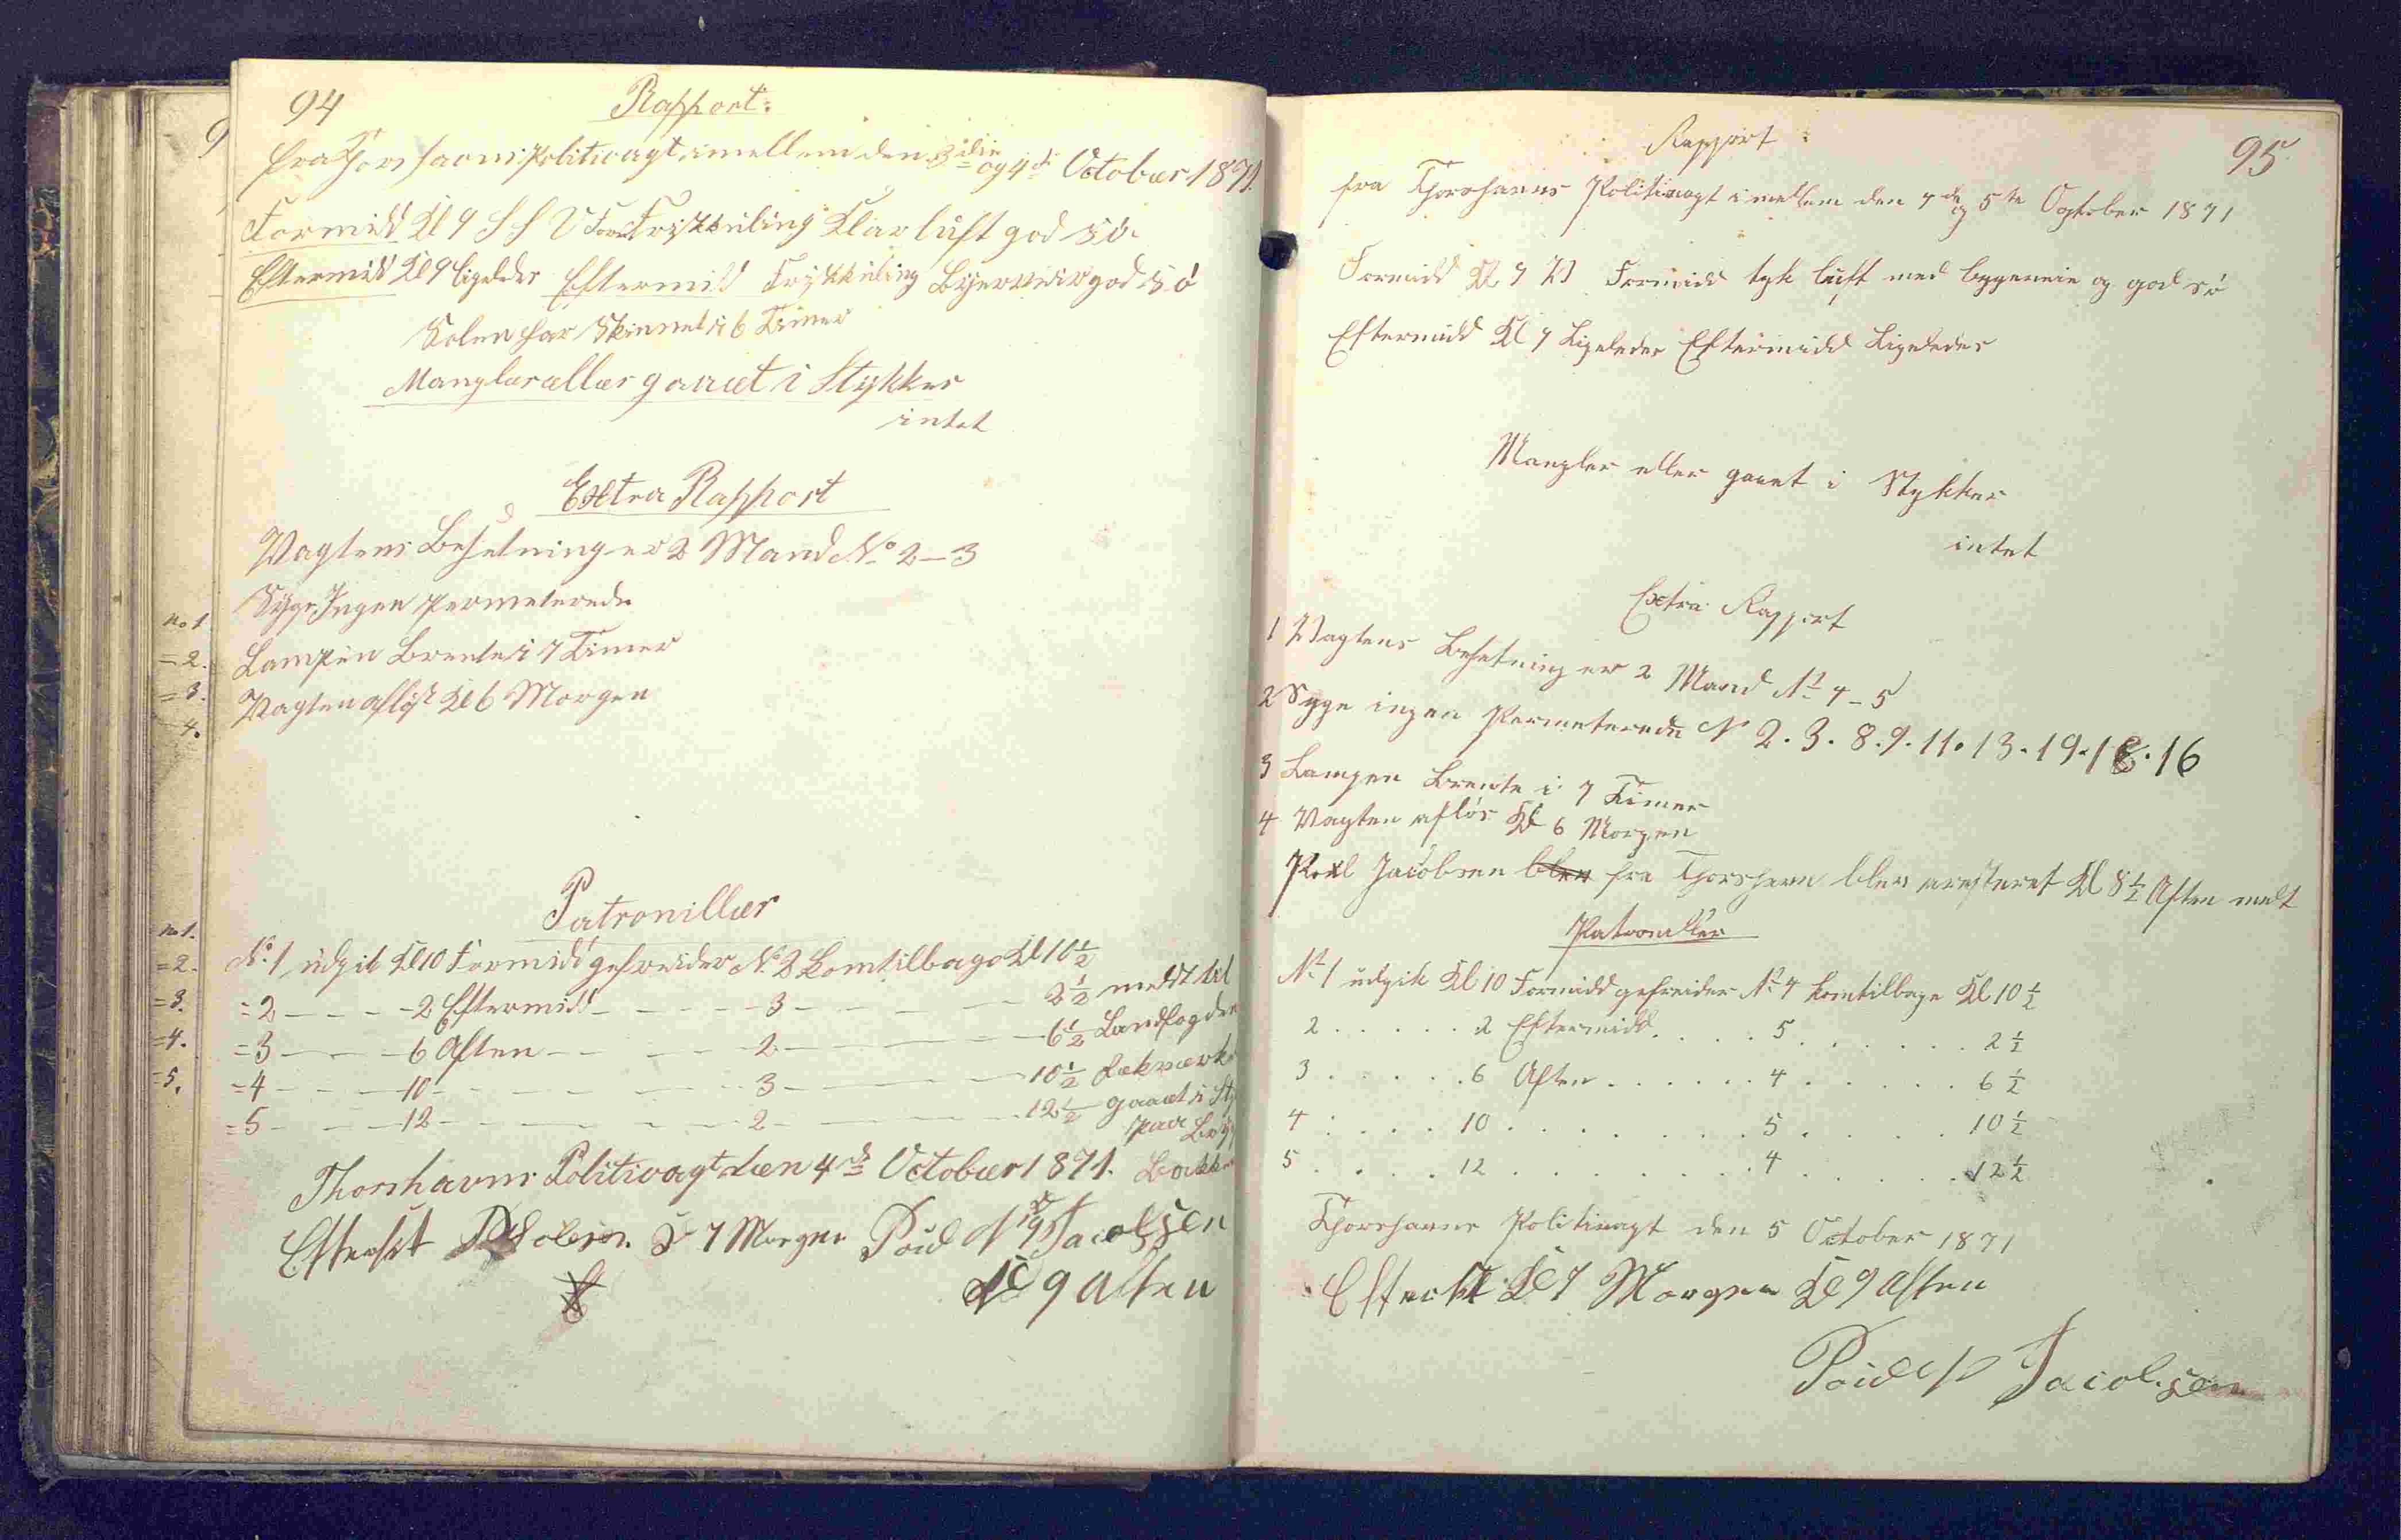 94
Rapport.
fra Thorshavns Politivagt imellem den 3die og 4de October 1871.
Formidd Kl 9 Friskkuling Klar luft god sö.
Eftermidd Kl 9 ligeledes Eftermidd Friskkuling Byerveir god sö
Solen har Skinnet i 6 Timer
Manglær ællær gaaæt i Stykker
intet
Extra Rapport
no 1 Vagtens Besetning er 2 Mand No 2–3
=2. Syge Ingen Permeterede
=3. Lampen Brente i 7 Timer
4. Vagten aflöst Kl 6 Morgen
Patronillær
no 1. No. 1 udgik Kl 10 Formidd gefreider No 2 kom tilbage Kl 10 1/2
=2. =2 – – – 2 Eftermidd – – – 3 – – – 2 1/2 meldt til
=3. =3 – – – 6 Aften – – – 2 – – – 6 1/2 Landfogden
=4. =4 – – – 10 – – – 3 – – – 10 1/2
=5. =5 – – – 12 – – – 2 – – – 12 1/2 gaaæt i St
paa
Thorshavns Politivagt den 4de October 1871.
Efterset Kl 7 Morgen Poul Jacobsen
Kl 9 Aften
95
Rapport
fra Thorshavns Politivagt imellem den 4de og 5te Ogtober 1871
Formidd Kl 9 V Formidd tyk luft med byereie og god sö
Eftermidd Kl 9 Ligeledes Eftermidd Ligeledes
Mangler eller gaaet i Stykker
intet
Extra Rapport
1 Vagtens Besetning er 2 Mand No 4–5
2 Syge ingen Permeterede No 2. 3. 8. 9. 11. 13. 19. 18. 16
3 Lampen Brente i 7 Timer
4 Vagten aflös Kl 6 Morgen
Poul Jacobsen blev fra Thorshavn blev aresteret Kl 8 1/2 Aften melt
Patronller
No 1 udgik Kl 10 Formidd gefreider No 4 kom tilbage Kl 10 1/2
2 . . . . . 2 Eftermidd . . . . 5 . . . . . . 2 1/2
3 . . . . . 6 Aften . . . . . . 4 . . . . . . 6 1/2
4 . . . . 10 . . . . . . . 5 . . . . . 10 1/2
5 . . . . 12 . . . . . . . 4 . . . . . . 12 1/2
Thorshavns Politivagt den 5 October 1871
Efterset Kl 7 Morgen Kl 9 Aften
Poul Jacobsen